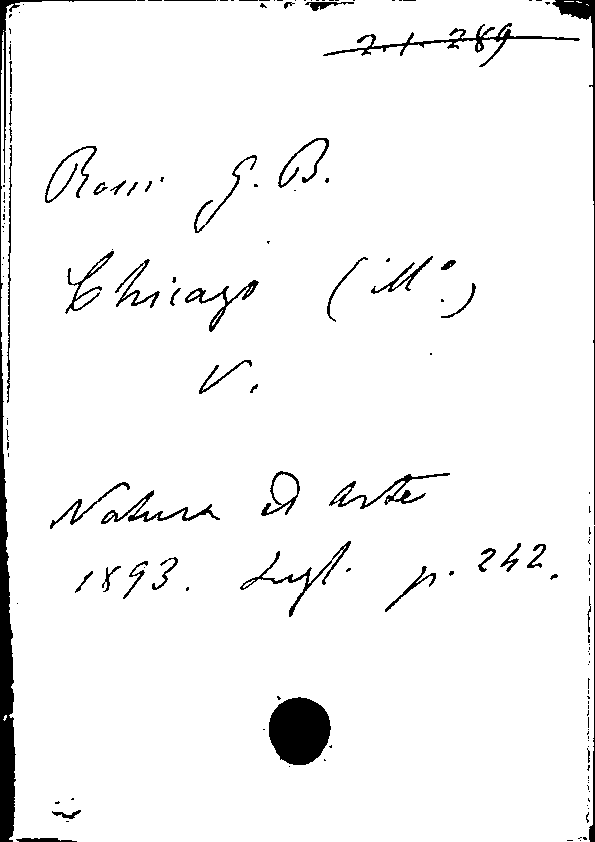 2.1.289
Rossi G. B.
Chicago (Ill.)
V.
Natura ed arte
1893. Lugl. p. 242.